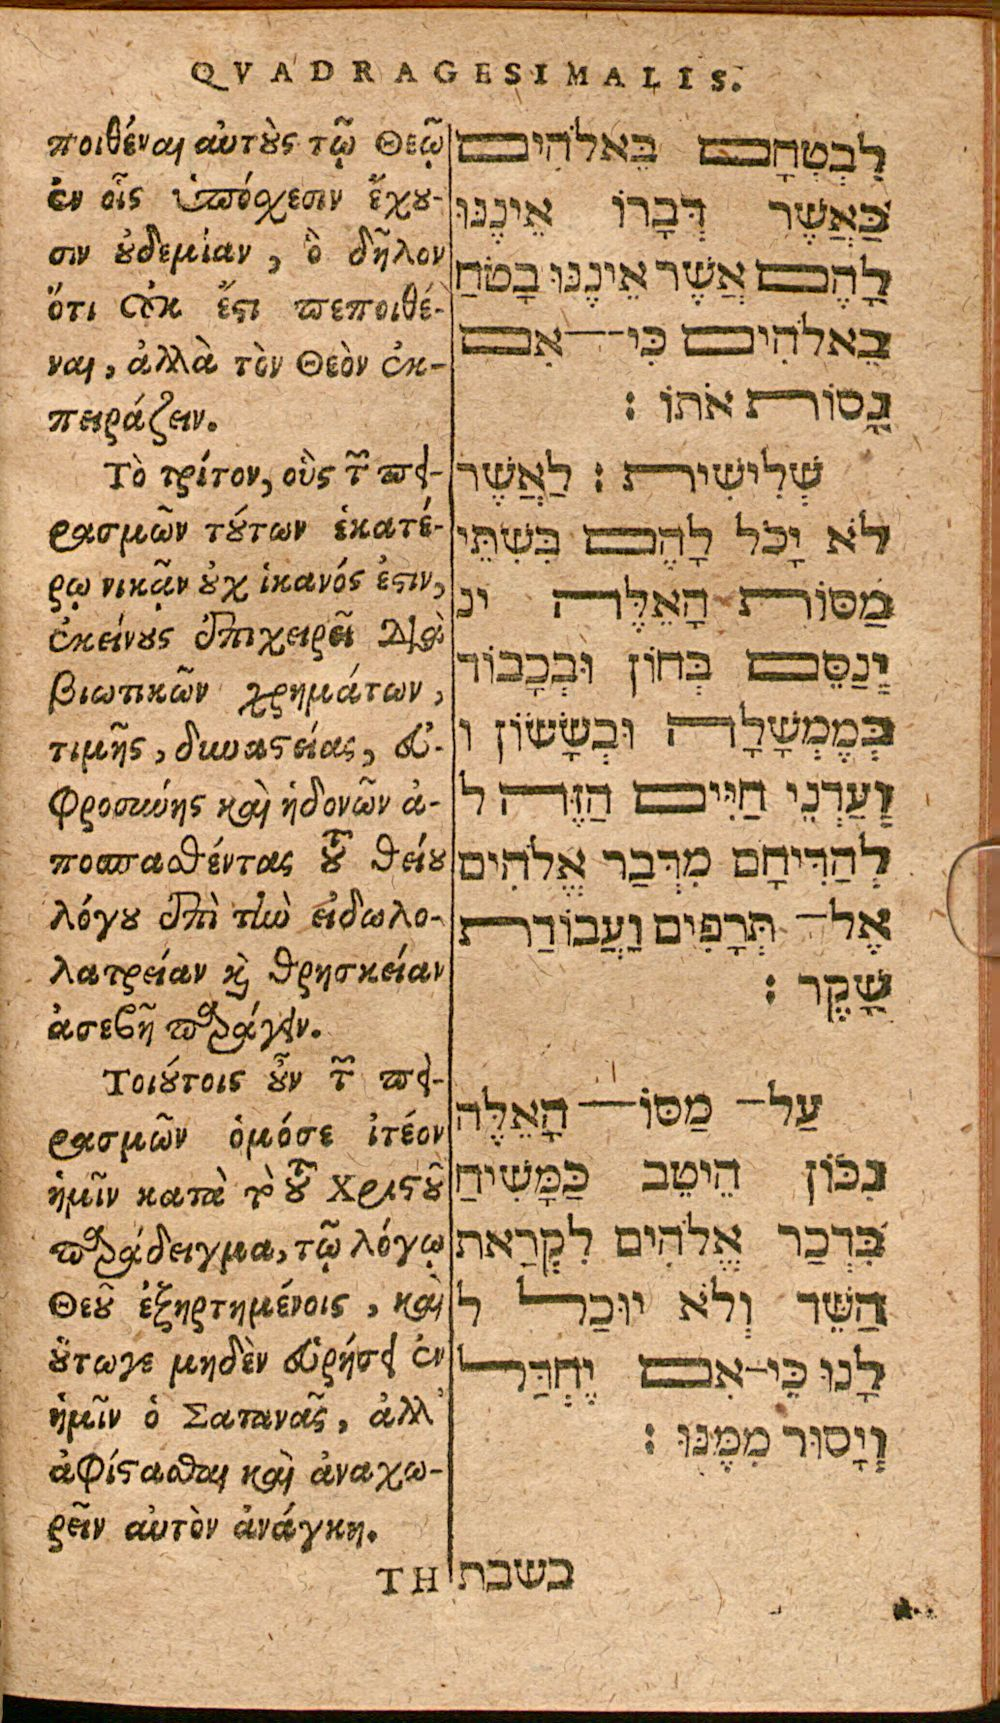 QVADRAGESIMALIS.
ποιθέναι αὐτοὺς τῷ Θεῷ
ἐν οἷς ὑπόσχεσιν ἔχου-
σιν οὐδεμίαν, ὃ δῆλον
ὅτι οὐκ ἔστι πεποιθέ-
ναι, ἀλλὰ τὸν Θεὸν ἐκ-
πειράζειν.
Τὸ τρίτον, οὓς τῶν πει-
ρασμῶν τούτων ἑκατέ-
ρῳ νικᾷν οὐχ ἱκανός ἐστιν,
ἐκείνους ἐπιχειρεῖ διὰ
βιωτικῶν χρημάτων,
τιμῆς, δυναστείας, εὐ-
φροσύνης καὶ ἡδονῶν ἀ-
ποσπασθέντας τοῦ θείου
λόγου ἐπὶ τὴν εἰδωλο-
λατρείαν καὶ θρησκείαν
ἀσεβῆ παράγειν.
Τοιούτοις οὖν τῶν πει-
ρασμῶν ὁμόσε ἰτέον
ἡμῖν κατὰ τὸ τοῦ Χριστοῦ
παράδειγμα, τῷ λόγῳ
Θεοῦ ἐξηρτημένοις, καὶ
οὕτωγε μηδὲν εὑρήσει ἐν
ἡμῖν ὁ Σατανᾶς, ἀλλ᾽
ἀφίστασθαι καὶ ἀναχω-
ρεῖν αὐτὸν ἀνάγκη.
ΤΗ
לִבְטְחָם בֵּאלֹהִים
כַּאֲשֶׁר דְּבָרוֹ אֵינֶנּוּ
לָהֶם אֲשֶׁר אֵינֶנּוּ בָטֹחַ
בֵאלֹהִים כִּי־אִם
נָסוֹת אֹתוֹ :
שְׁלִישִׁית : לַאֲשֶׁר
לֹא יָכֹל לָהֶם בִּשְׁתֵּי
מַסּוֹת הָאֵלֶּה ינ
יְנַסֵּם בְּחוֹן וּבְכָבוֹד
בְּמֶמְשָׁלָה וּבְשָׂשׂוֹן ו
וָעַדְנֵי חַיִּים הַזֶּה ל
לְהַדִּיחָם מִדְּבַר אֱלֹהִים
אֶל־ תְּרָפִים וַעֲבוֹדַת
שָׁקֶר :
עַל־ מַסּוֹ־ הָאֵלֶּה
נִכּוֹן הֵיטֵב כַּמָּשִׁיחַ
בִּדְבַר אֱלֹהִים לִקְרַאת
הַשֵּׁד וְלֹא יוּכַל ל
לָנוּ כִּי־אִם יֶחְדַּל
וְיָסוּר מִמֶּנּוּ :
בשבת